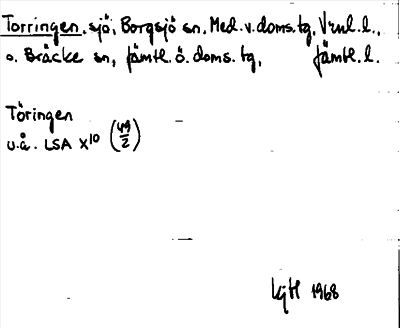 Torringen, sjö, Borgsjö sn, Med.v.doms.tg, Vrnl.l.,
o. Bräcke sn, Jämtl.ö.doms.tg, Jämtl.l.
Töringen
u.å. LSA X10 (49/2)
1968